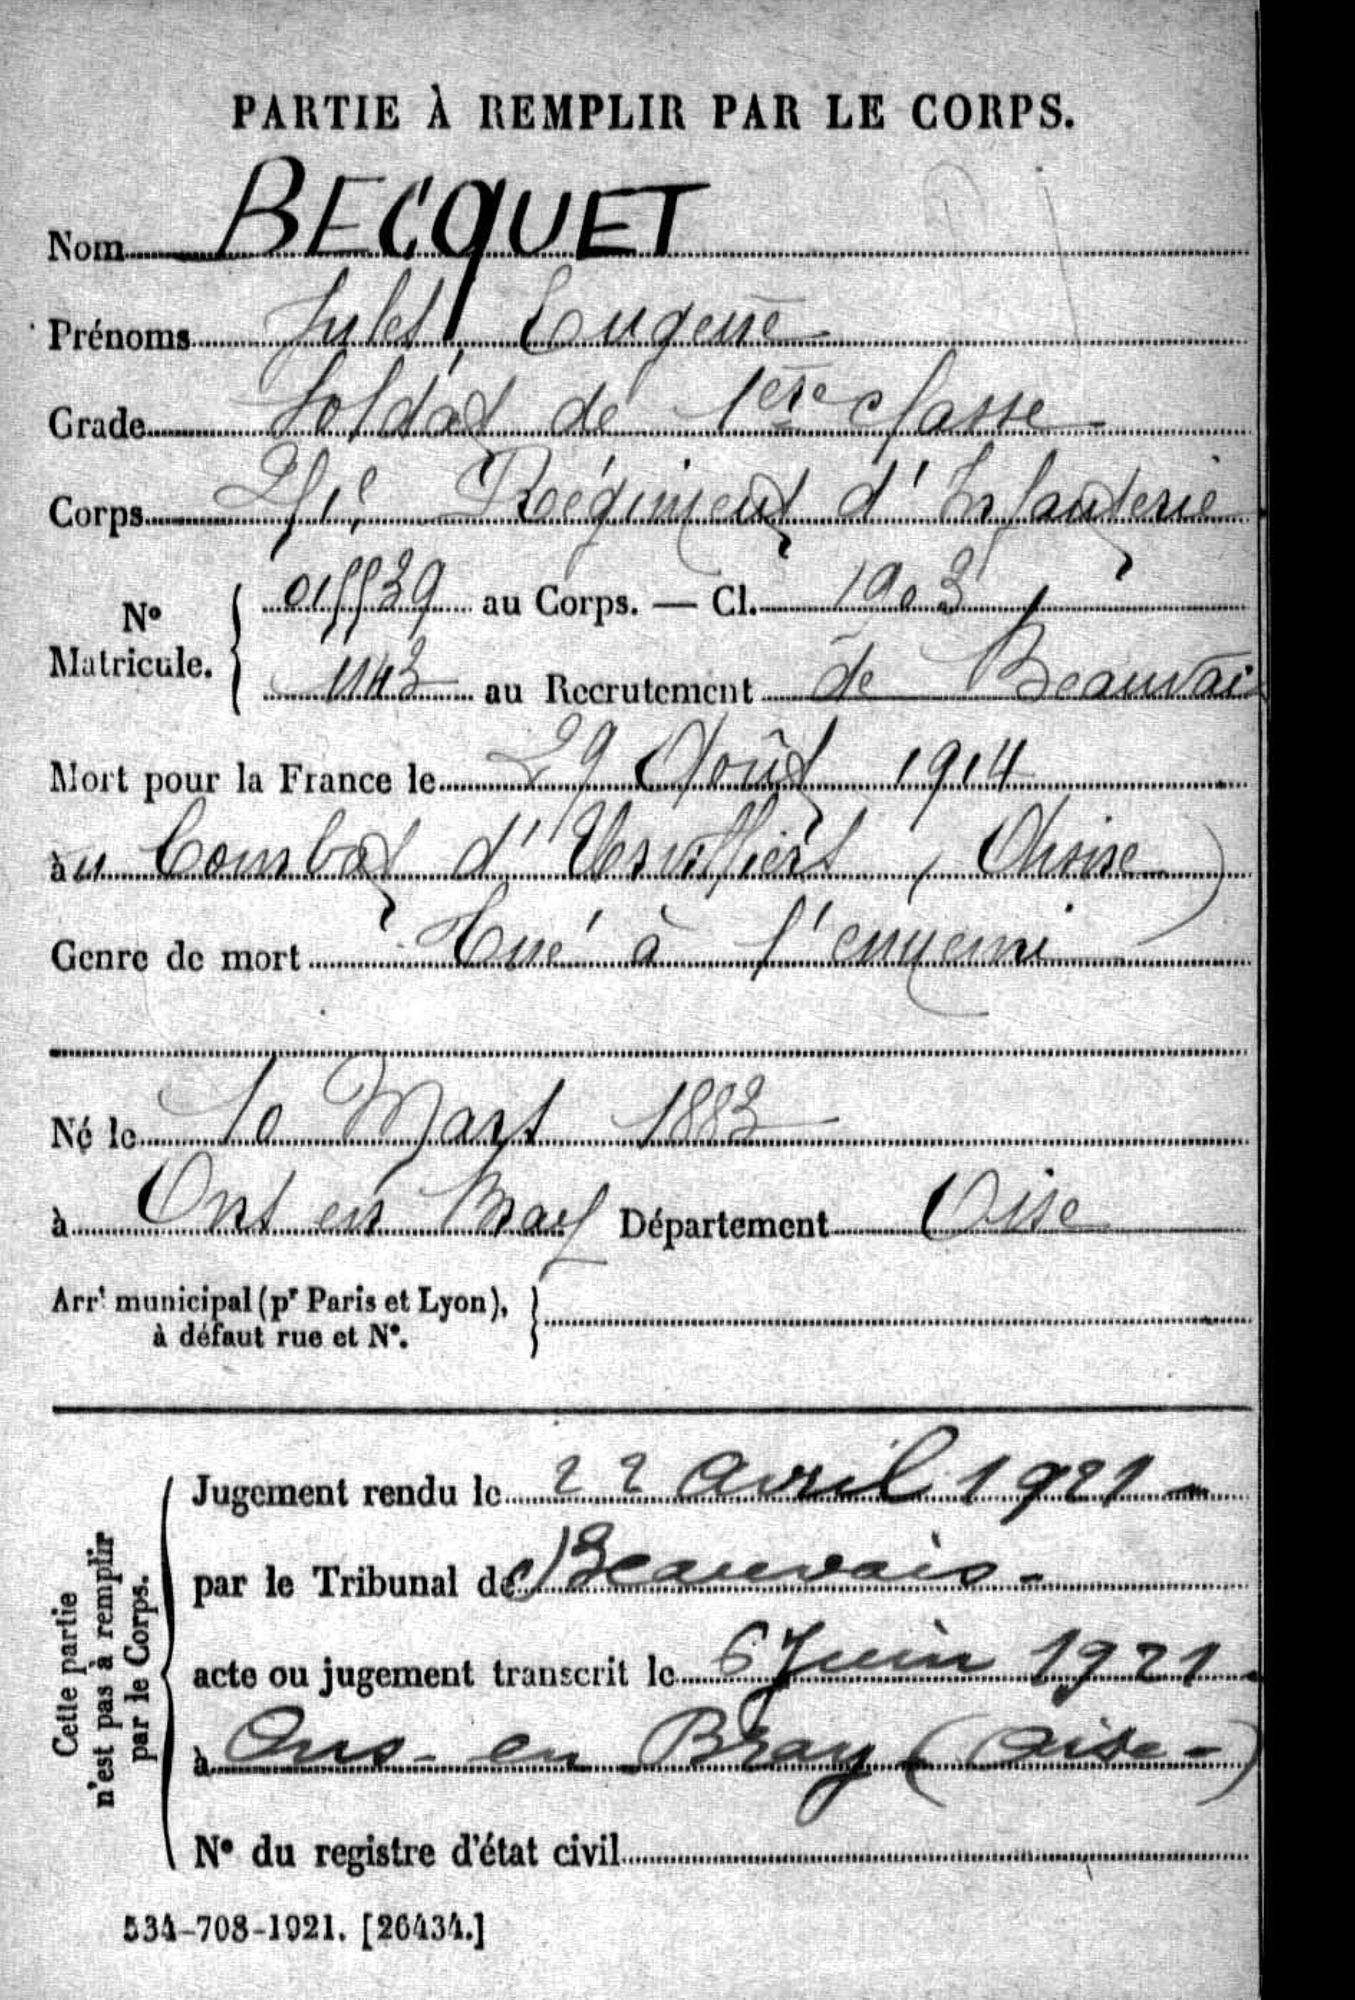 PARTIE À REMPLIR PAR LE CORPS.
Nom BECQUET
Prénoms Jules, Eugène
Grade Soldat de 1ère classe
Corps 51e Régiment d'Infanterie
N° Matricule. 015539 au Corps. — Cl. 1903
1143 au Recrutement de Beauvais
Mort pour la France le 29 Août 1914
au Combat d' (Aisne)
Genre de mort Tué à l'ennemi
Né le 10 Mars 1883
à Ons en Bray Département Oise
Arrt municipal (pr Paris et Lyon),
à défaut rue et N°.
Cette partie
n'est pas à remplir
par le Corps.
Jugement rendu le 22 avril 1921 -
par le Tribunal de Beauvais -
acte ou jugement transcrit le 6 Juin 1921.
à Ons - en Bray (Oise -)
N° du registre d'état civil
534-708-1921. [26434.]